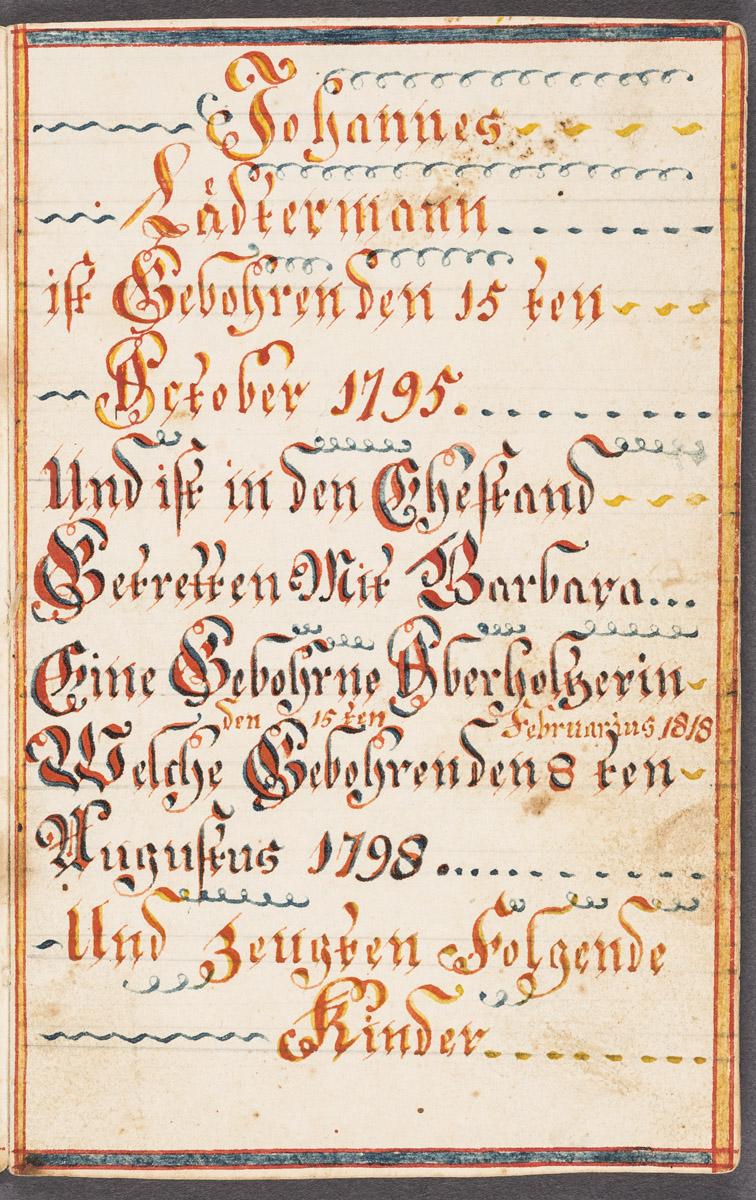 Johannes
Lädtermann
ist Gebohren den 15 ten
October 1795.
Und ist in den Ehestand
Getretten Mit Barbara...
Eine Gebohrne Oberholtzerin
den 15 ten Februarius 1818
Welche Gebohren den 8 ten
Augustus 1798
Und Zeugten Folgende
Kinder